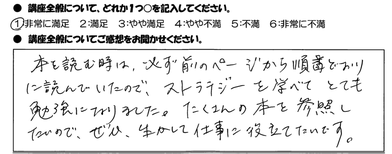 ● 講座全般について、どれか1つ○を記入してください。
①非常に満足 2:満足 3:やや満足 4:やや不満 5:不満 6:非常に不満
● 講座全般についてご感想をお聞かせください。
本を読む時は、必ず前のページから順番どおり
に読んでいたので、ストラテジーを学べてとても
勉強になりました。たくさんの本を参照し
たいので、ぜひ、生かして仕事に役立てたいです。